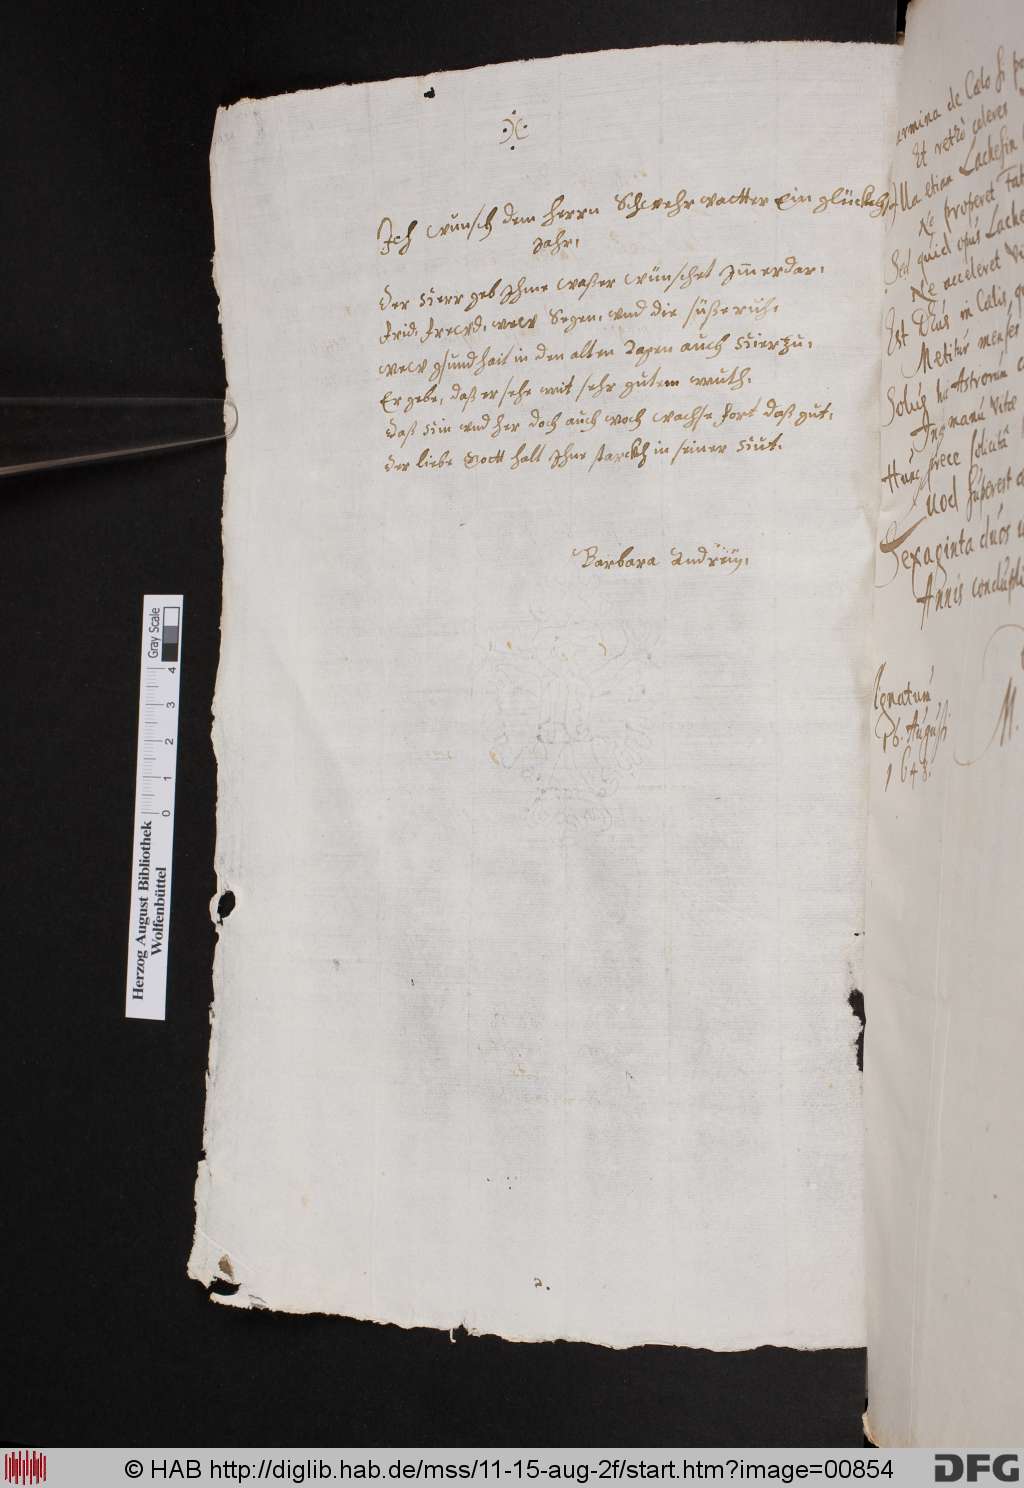 Ich wünsch dem Herrn Schwehrvatter Ein glückch
Jahr.
Der Herr geb Ihme waßer wünschet Immerdar.
Frid, Frewd, vnd Segen, vnd die süße ruh,
vnd gsundhait in den alten Tagen auch Hierzu.
Er gebe, daß er sehe mit sehr gutem muth.
Daß Hin vnd her doch auch noch wachse fort daß gut.
Der liebe Gott halt Ihne starckh in seiner Hut.
Barbara Andreäin.
2.
termina de Cælo si
Et retro celeres
Illa etiam Lachesin
Ne properet Fat
Sed quid opus Lache
Ne acceleret
Est Deus in Cælis, q
Metitur menses
Solus hic Astrorum
Inq manu Vitæ
Hunc prece solicita
uod superest
Sexaginta duos
Annis
ignatum
Augusti
1643.
M.
Gray Scale
0 1 2 3 4
Herzog August Bibliothek
Wolfenbüttel
© HAB http://diglib.hab.de/mss/11-15-aug-2f/start.htm?image=00854
DFG